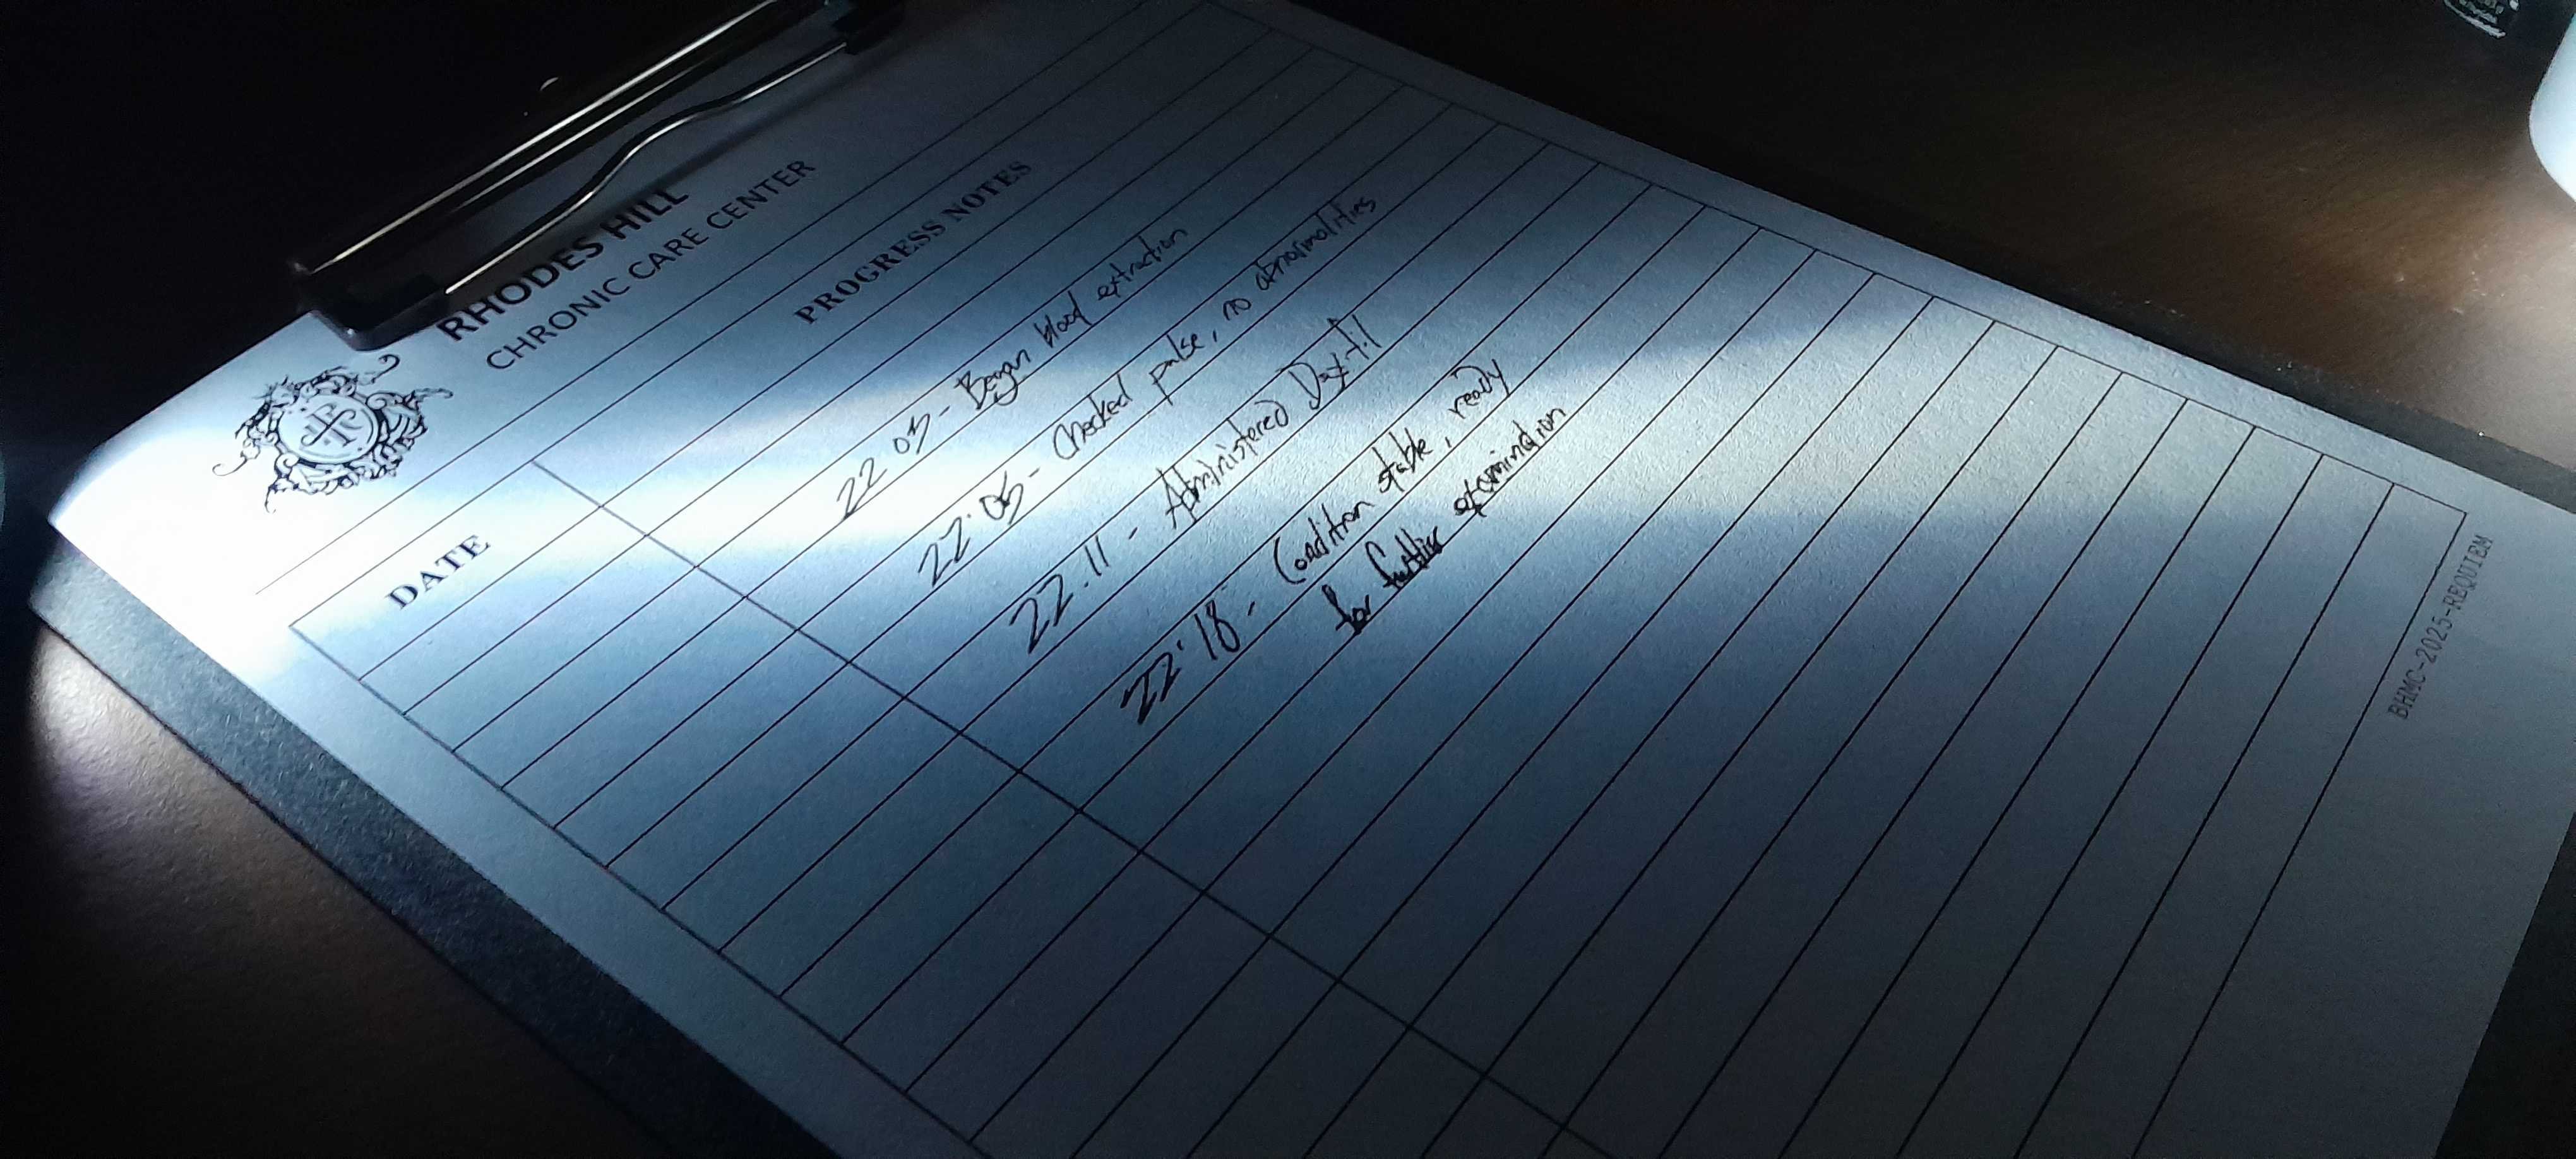 RHODES HILL
CHRONIC CARE CENTER
DATE
PROGRESS NOTES
22 03 - Began blood extraction
22:05 - Checked pulse, no abnormalities
22.11 - Administered
22:18 - Condition stable, ready
for further examination
BHMC-2025-REQUIEM